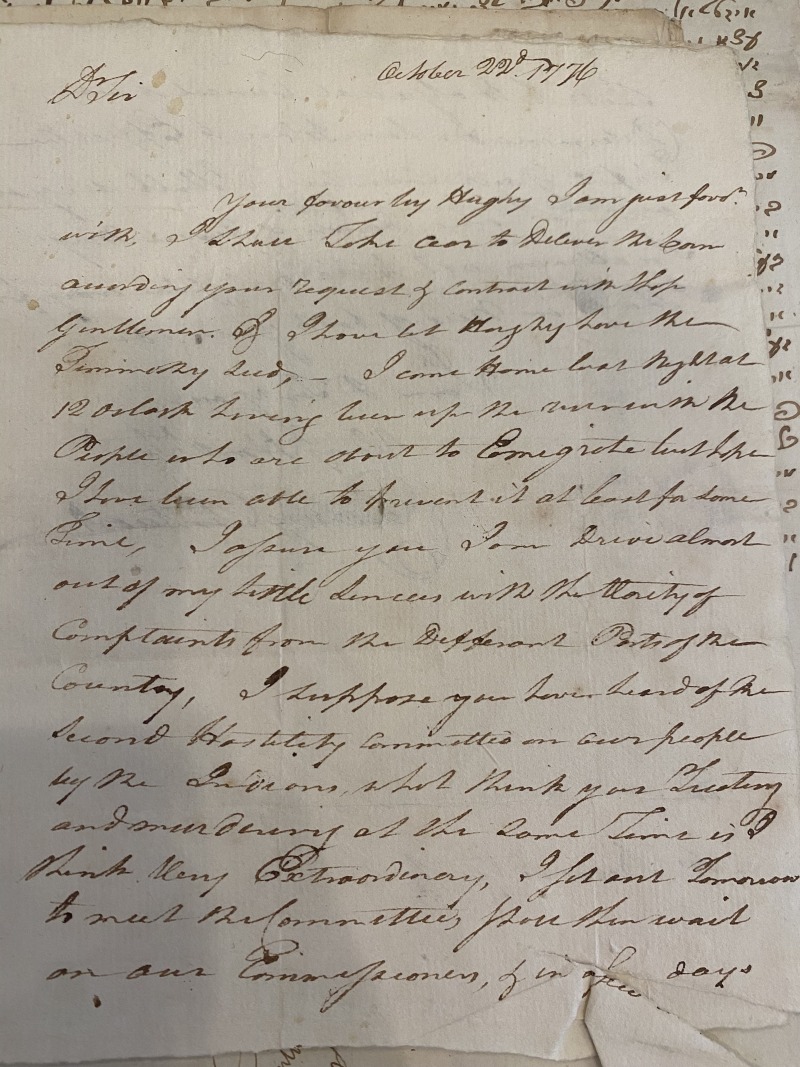 October 22d. 1776
Dr Sir
Your favour by Hughy I am just favd.
with, I shall Take care to Deliver the Corn
according your request & contract with thos
Gentlemen. & I have let Hughy have the
Timmothy seed, — I came Home last Night at
12 oclock having been up the river with the
People who are about to Emegrate but hope
I have been able to prevent it at least for some
Time, I assure you I am Drive almost
out of my little Sences with the
Complaints from the Defferant Parts of the
Country, I suppose you have heard of the
Second Hostility committed on our people
by the Indians, what think you Treeting
and murdering at the same Time is I
think Very Extraordinary, I set out Tomorrow
to meet the Committee, shall then wait
on our Commissioners, & in a few days